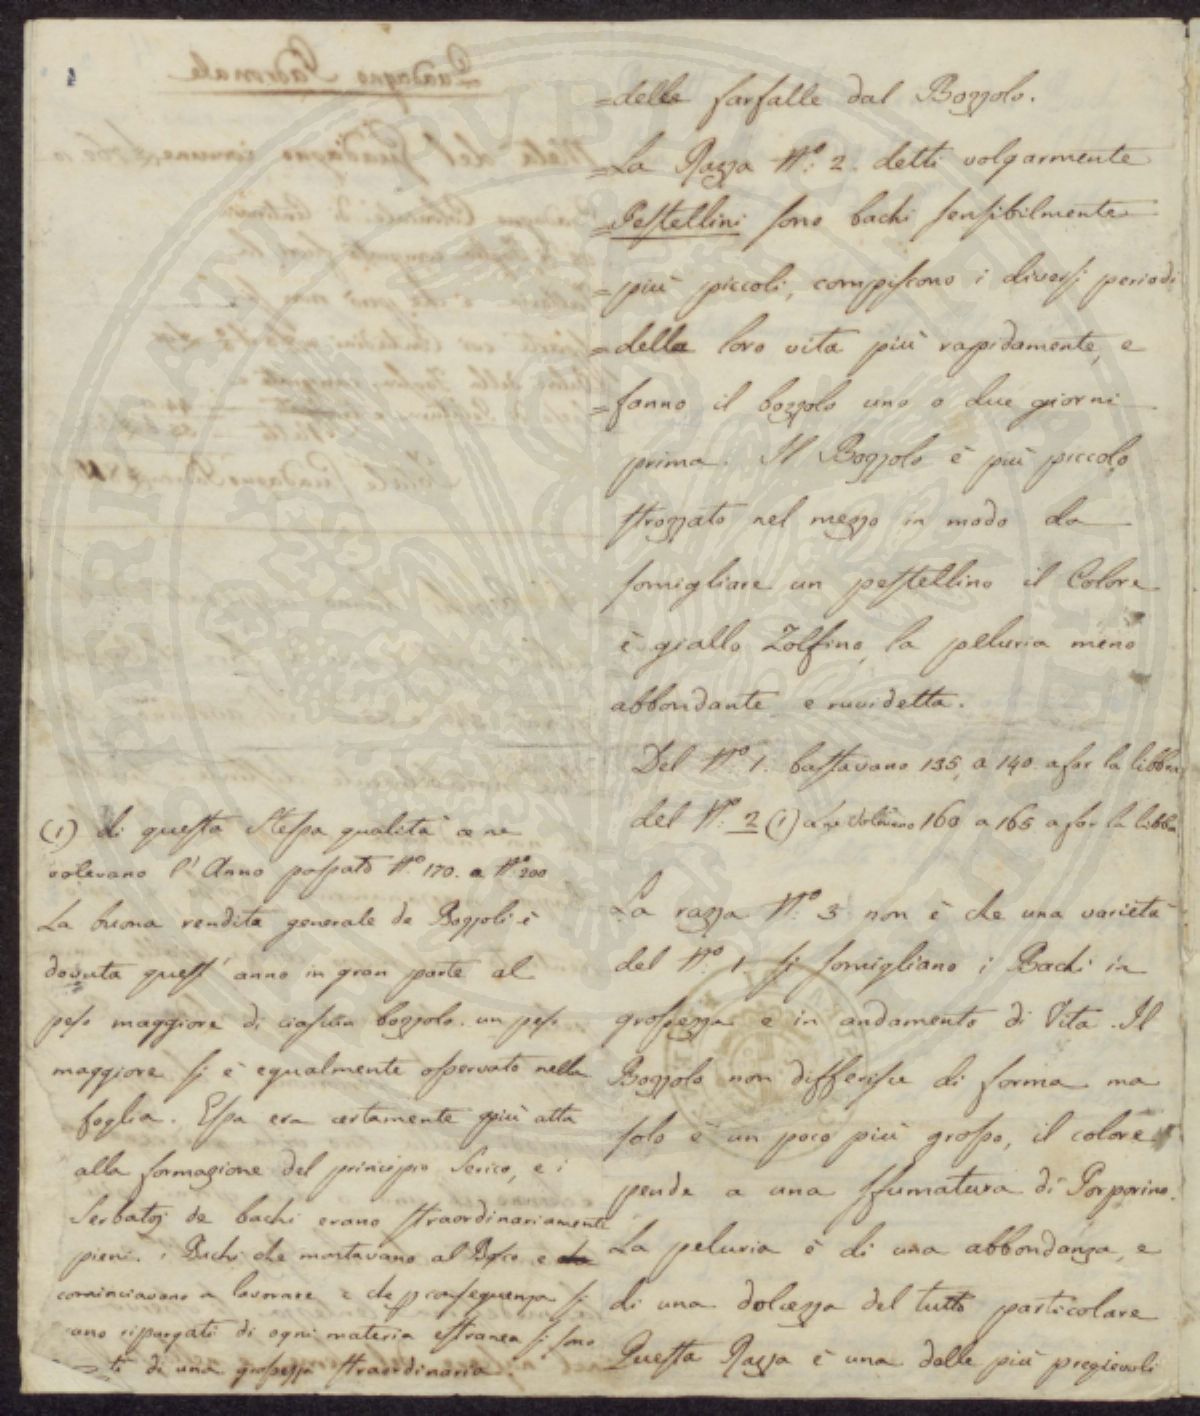 delle farfalle dal Bozzolo.
La Razza Nº: 2. detti volgarmente
Pestellini sono bachi sensibilmente
più piccoli, compiscono i diversi periodi
della loro vita più rapidamente, e
fanno il bozzolo uno o due giorni
prima. Il Bozzolo è più piccolo
strozzato nel mezzo in modo da
somigliare un pestellino il Colore
è giallo Zolfino, la peluria meno
abbondante e ruvidetta.
Del Nº: 1. bastavano 135, a 140. a far la libbra
del Nº: 2 (1) volevano 160 a 165 a far la libbra
La razza Nº: 3 non è che una varietà
del Nº: 1. si somigliano i Bachi in
grossezza e in andamento di Vita. Il
Bozzolo non differisce di forma ma
solo è un poco più grosso, il colore
pende a una sfumatura di Porporino.
La peluria è di una abbondanza, e
di una dolcezza del tutto particolare
Questa Razza è una delle più pregievoli
(1) di questa stessa qualità ce ne
volevano l'Anno passato Nº: 170. a Nº: 200
La buona rendita generale de Bozzoli è
dovuta quest'anno in gran parte al
peso maggiore di ciascun bozzolo. un peso
maggiore si è egualmente osservato nella
foglia. Essa era certamente più atta
alla formazione del principio Serico, e i
Serbatoj de bachi erano straordinariamente
pieni. i Bachi che montavano al Bosco, e
cominciavano a lavorare e che p conseguenza si
ano ripurgati di ogni materia estranea si sono
ti di una grossezza straordinaria.